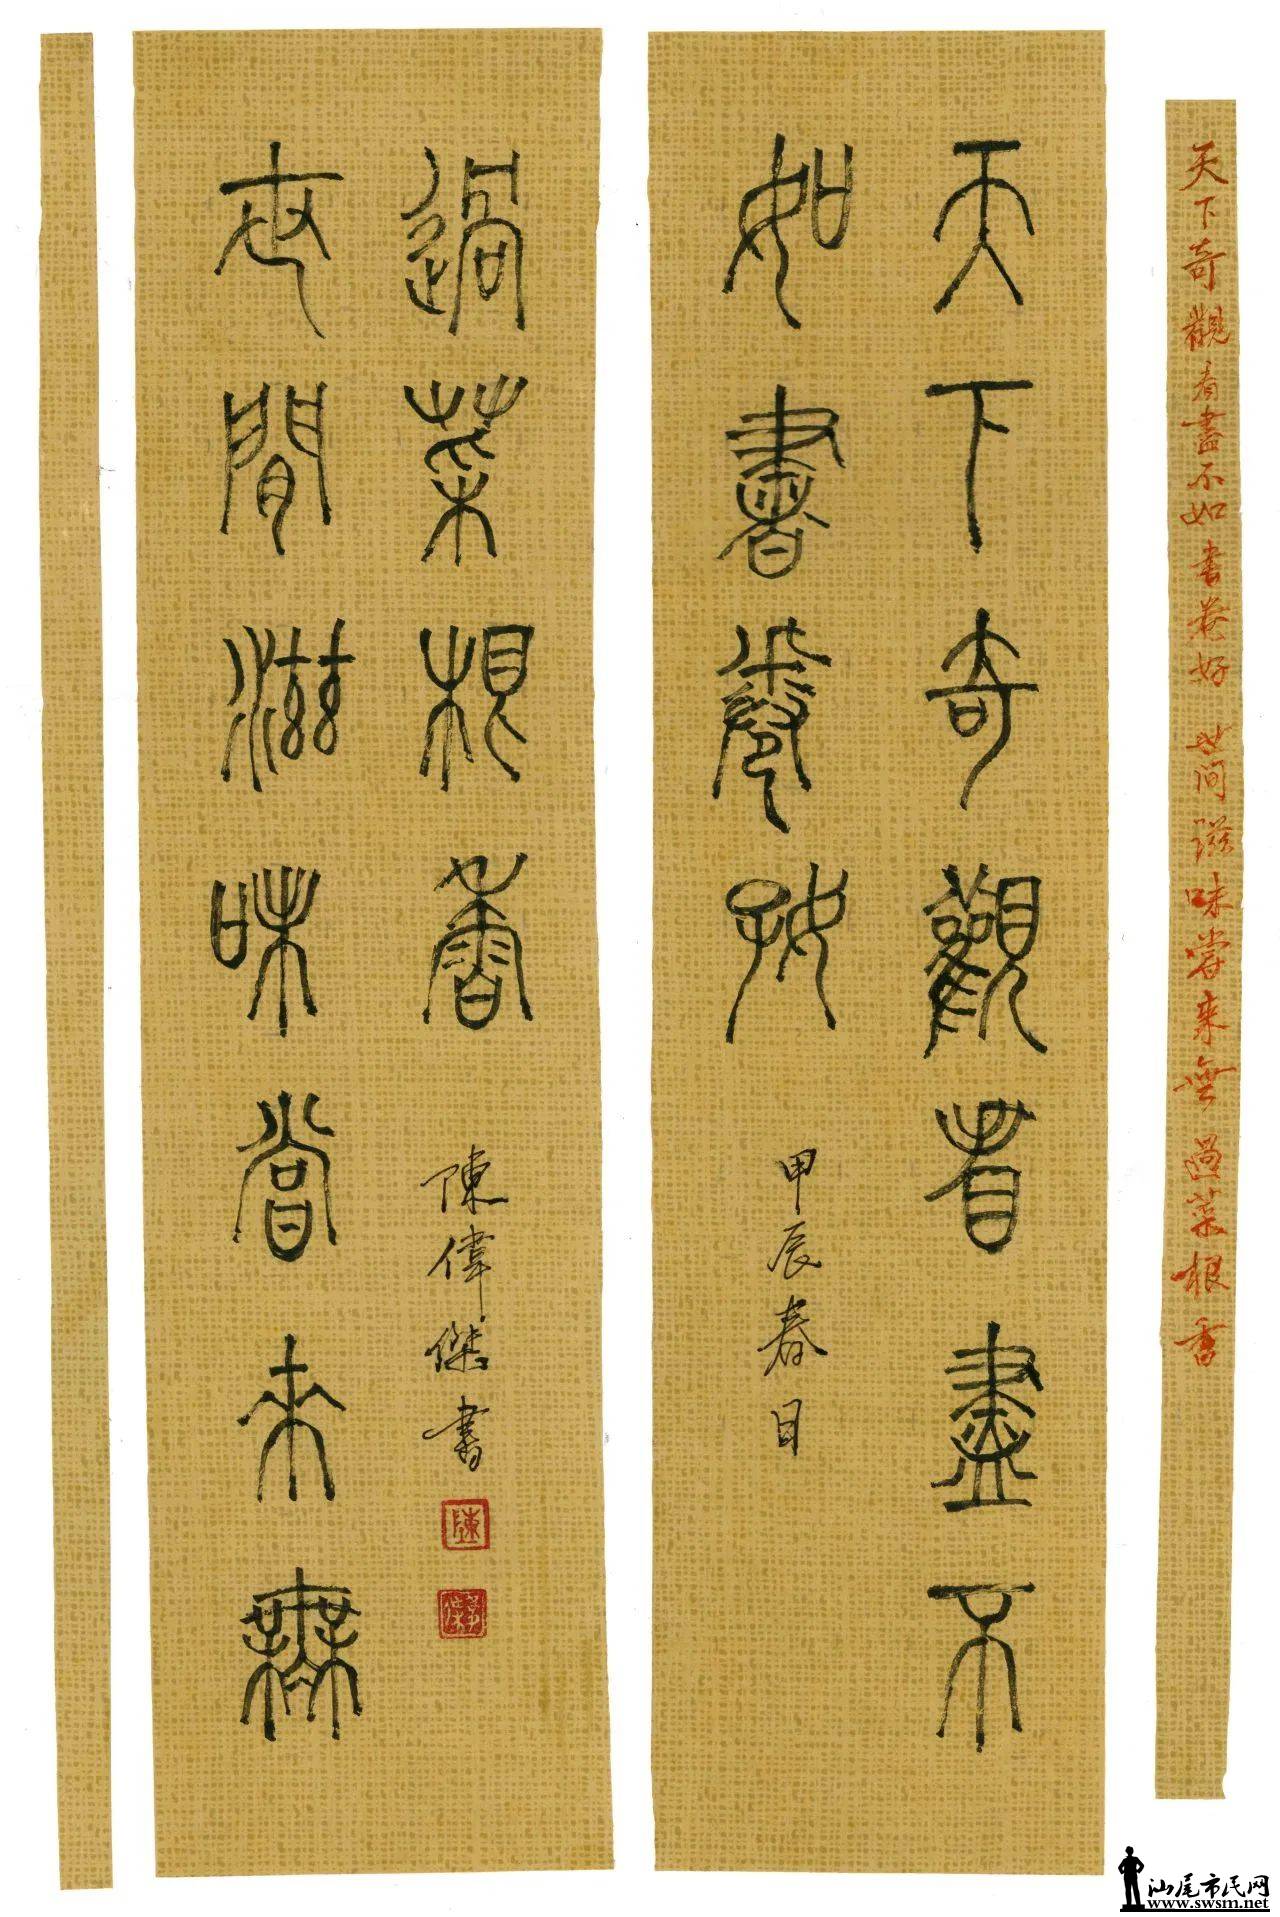 天下奇觀看盡不如書卷好 世间滋味嘗來無過菜根香
天下奇觀看盡不
如書卷好
甲辰春日
世間滋味嘗來無
過菜根香
陳偉傑書
陳
汕尾市民网
www.swsm.net